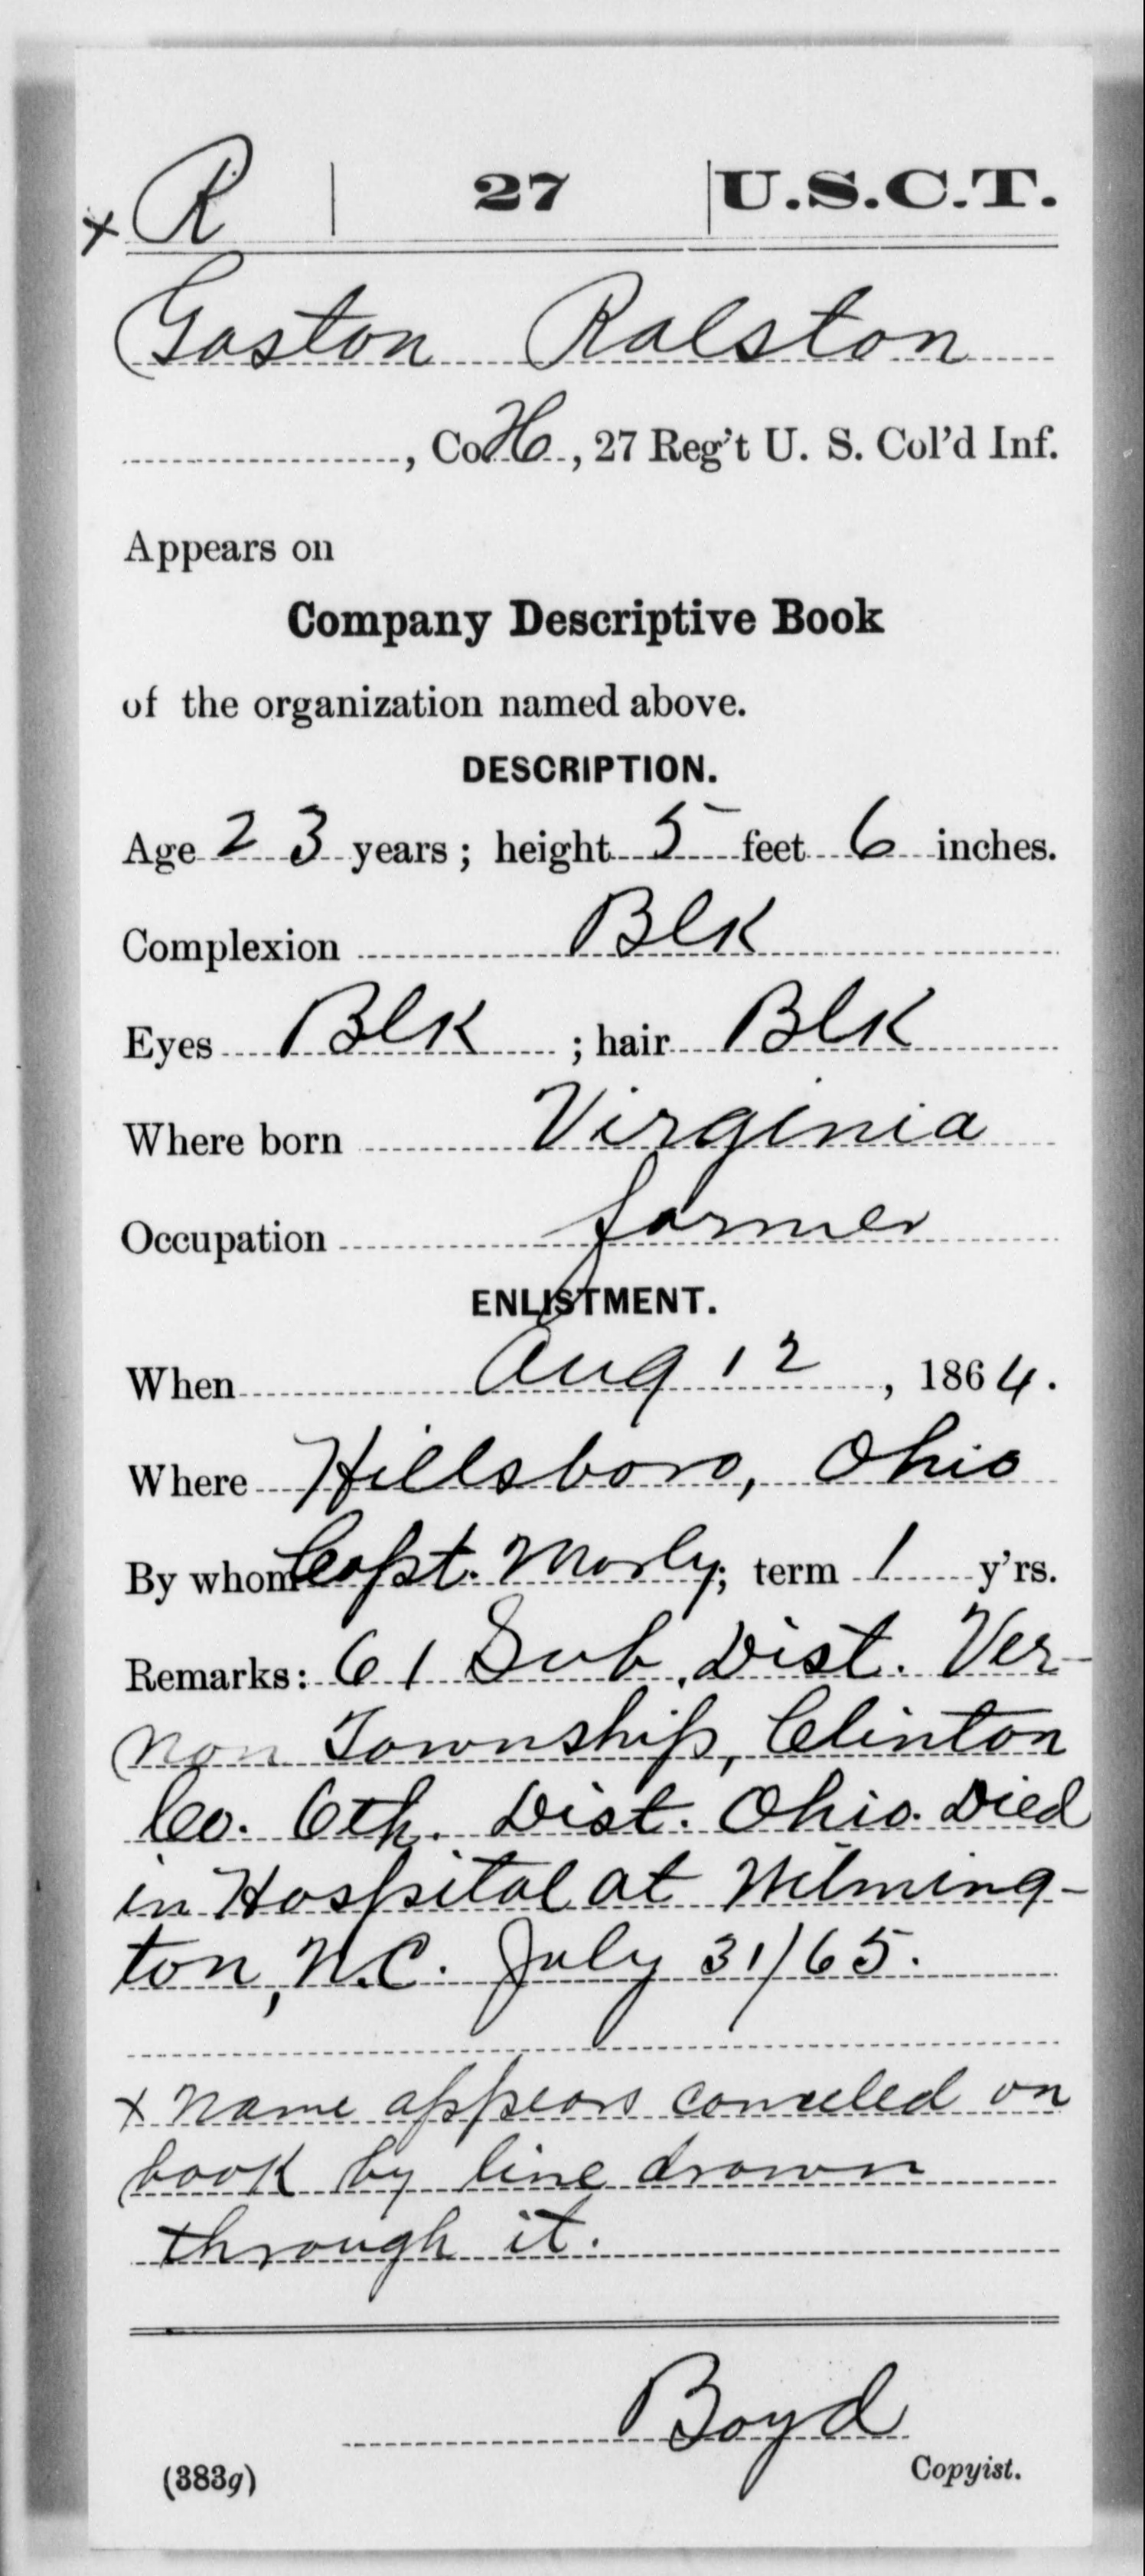 x R | 27 | U.S.C.T.
Gaston Ralston
, Co. H, 27 Reg't U. S. Col'd Inf.
Appears on
Company Descriptive Book
of the organization named above.
DESCRIPTION.
Age 23 years; height 5 feet 6 inches.
Complexion Blk
Eyes Blk; hair Blk
Where born Virginia
Occupation farmer
ENLISTMENT.
When Aug 12, 1864.
Where Hillsboro, Ohio
By whom Capt. Morly; term 1 y'rs.
Remarks: 61 Sub. Dist. Ver-
non Township, Clinton
Co. 6th. Dist. Ohio. Died
in Hospital at Wilming-
ton, N.C. July 31/65.
x Name appears canceled on
book by line drawn
through it.
Boyd
(383g) Copyist.